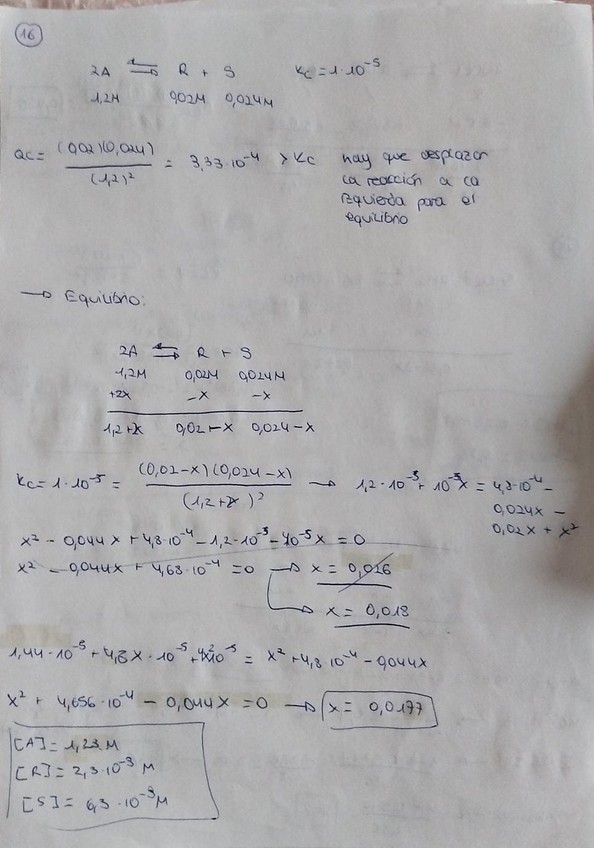 16
2A ⇌ R + S Kc = 1·10⁻⁵
1,2M 0,02M 0,024M
Qc = (0,02)(0,024) / (1,2)² = 3,33·10⁻⁴ > Kc hay que desplazar
la reacción a la
izquierda para el
equilibrio
→ Equilibrio:
2A ⇌ R + S
1,2M 0,02M 0,024M
+2x -x -x
1,2+2x 0,02-x 0,024-x
Kc = 1·10⁻⁵ = (0,02-x)(0,024-x) / (1,2+2x)² → 1,2·10⁻⁵ + 10⁻⁵x = 4,8·10⁻⁴ -
0,024x -
0,02x + x²
x² - 0,044x + 4,8·10⁻⁴ - 1,2·10⁻⁵ - 10⁻⁵x = 0
x² - 0,044x + 4,68·10⁻⁴ = 0 → x = 0,026
→ x = 0,018
1,44·10⁻⁵ + 4,8x·10⁻⁵ + 4x²10⁻⁵ = x² + 4,8·10⁻⁴ - 0,044x
x² + 4,656·10⁻⁴ - 0,044x = 0 → x = 0,0177
[A] = 1,23 M
[R] = 2,3·10⁻³ M
[S] = 6,3·10⁻³ M